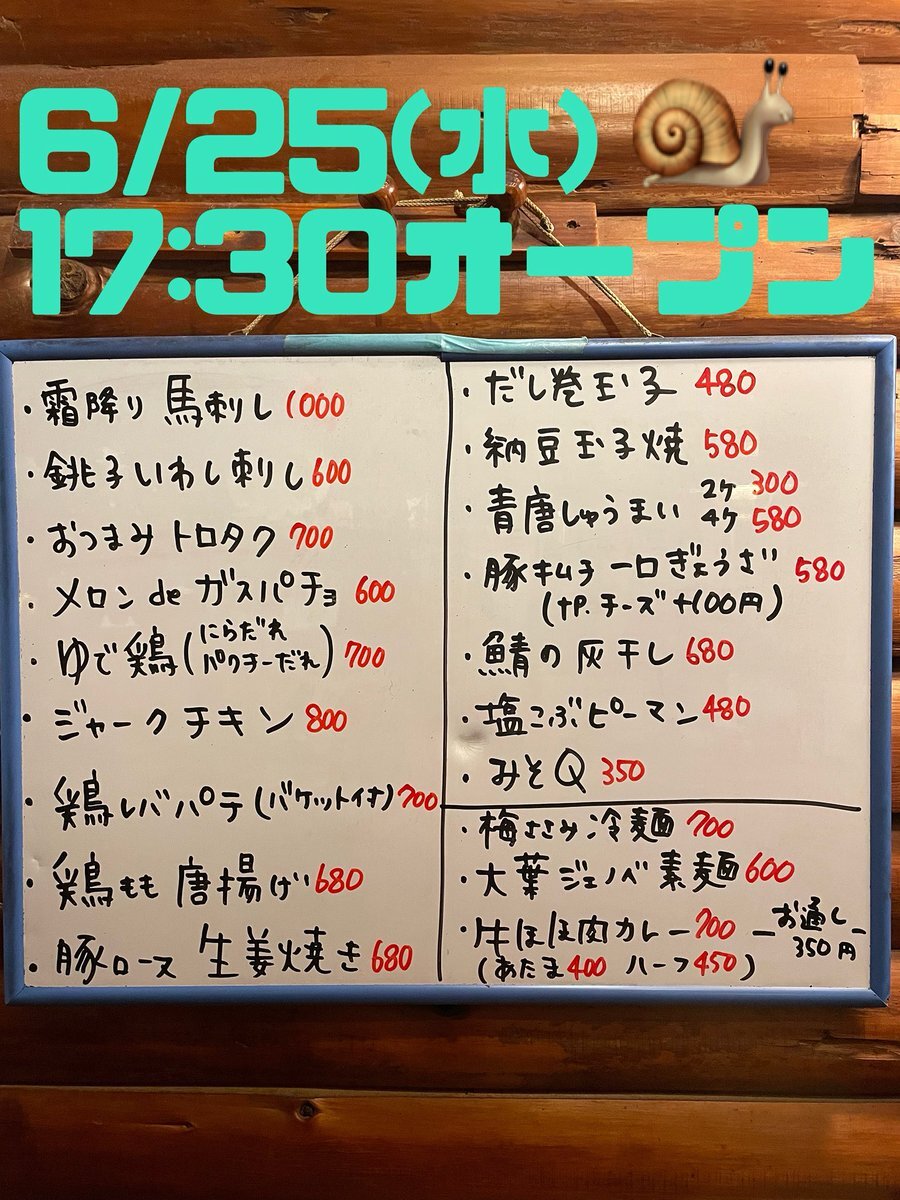 6/25(水)
17:30オープン
・霜降り 馬刺し 1000
・銚子いわし刺し 600
・おつまみ トロタク 700
・メロン de ガスパチョ 600
・ゆで鶏(にらだれ
パクチーだれ) 700
・ジャークチキン 800
・鶏レバパテ(バケット付き) 700
・鶏もも 唐揚げ 680
・豚ロース 生姜焼き 680
・だし巻玉子 480
・納豆玉子焼 580
・青唐しゅうまい 2ケ 300
4ケ 580
・豚キムチ 一口ぎょうざ 580
(tP.チーズ +100円)
・鯖の灰干し 680
・塩こぶピーマン 480
・みそQ 350
・梅ささみ冷麺 700
・大葉ジェノベ素麺 600
・牛ほほ肉カレー 700
(あたま400 ハーフ450)
ーお通しー
350円